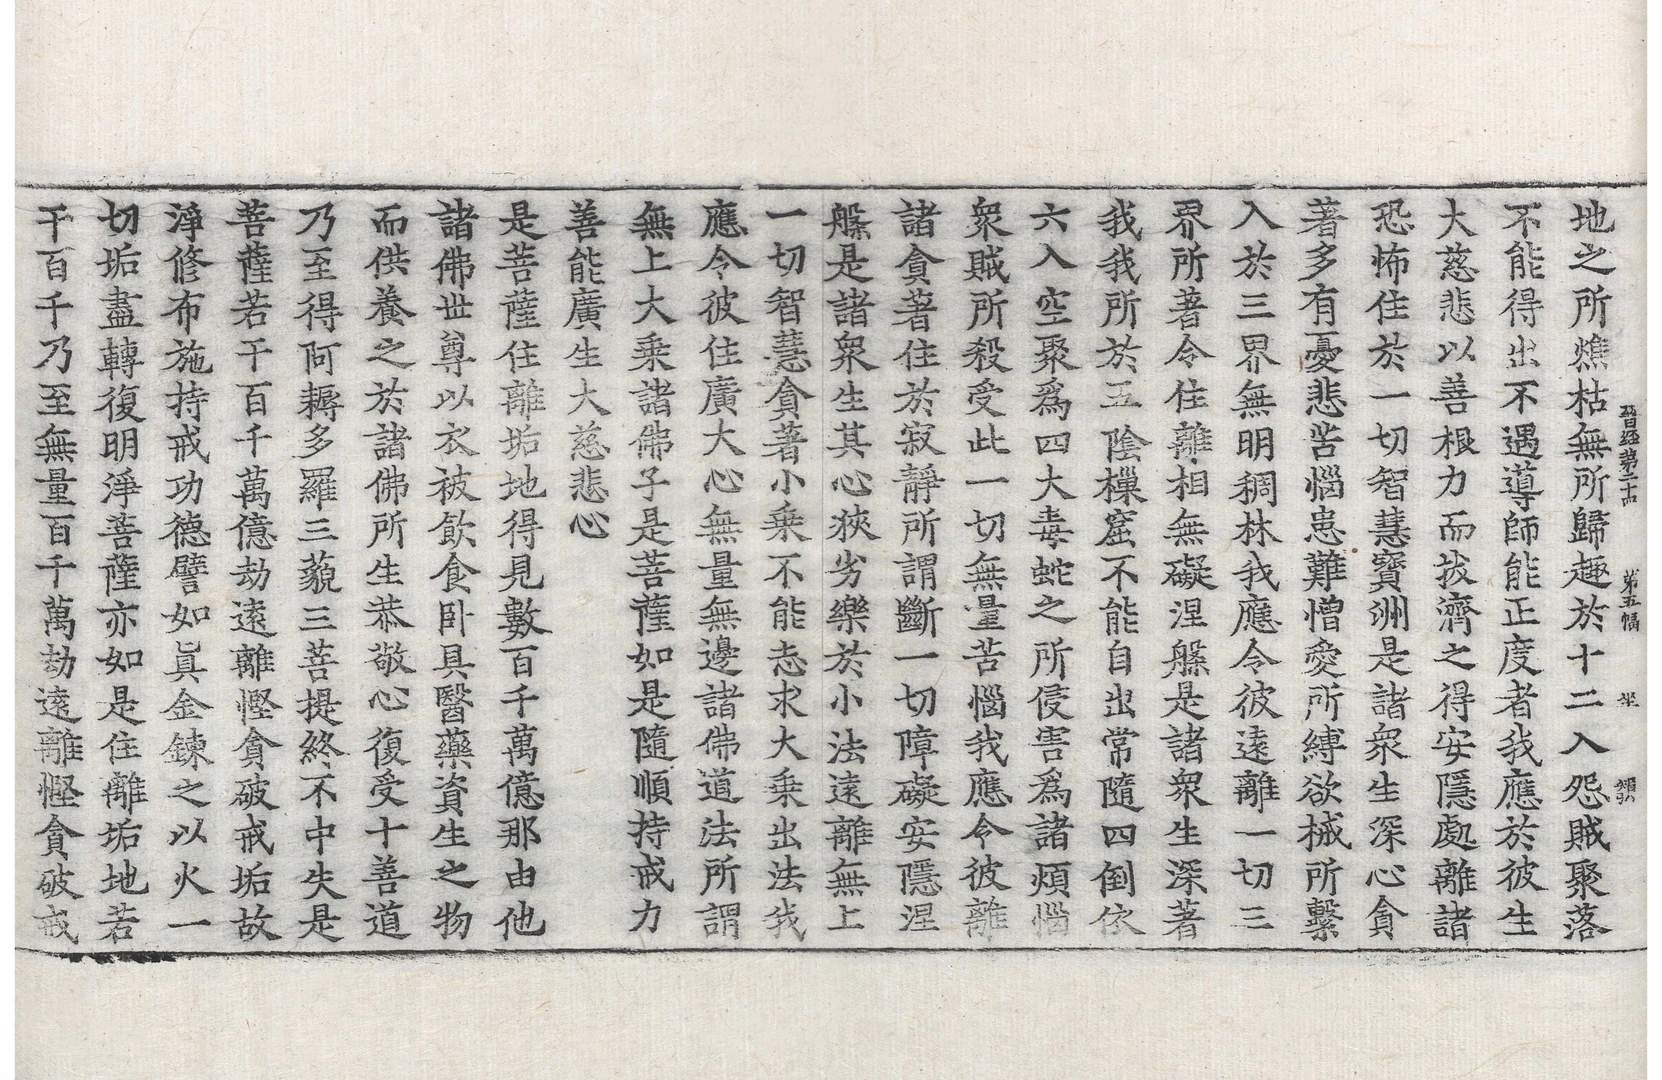 晉經第二十四　第五幅　坐
地之所燋枯無所歸趣於十二入怨賊聚落
不能得出不遇導師能正度者我應於彼生
大慈悲以善根力而拔濟之得安隱處離諸
恐怖住於一切智慧寶洲是諸衆生深心貪
著多有憂悲苦惱患難憎愛所縛欲械所繫
入於三界無明稠林我應令彼遠離一切三
界所著令住離相無礙涅槃是諸衆生深著
我我所於五陰樔窟不能自出常隨四倒依
六入空聚爲四大毒蛇之所侵害爲諸煩惱
衆賊所殺受此一切無量苦惱我應令彼離
諸貪著住於寂靜所謂斷一切障礙安隱涅
槃是諸衆生其心狹劣樂於小法遠離無上
一切智慧貪著小乘不能志求大乘出法我
應令彼住廣大心無量無邊諸佛道法所謂
無上大乘諸佛子是菩薩如是隨順持戒力
善能廣生大慈悲心
是菩薩住離垢地得見數百千萬億那由他
諸佛世尊以衣被飮食卧具醫藥資生之物
而供養之於諸佛所生恭敬心復受十善道
乃至得阿耨多羅三藐三菩提終不中失是
菩薩若干百千萬億劫遠離慳貪破戒垢故
淨修布施持戒功德譬如眞金鍊之以火一
切垢盡轉復明淨菩薩亦如是住離垢地若
干百千乃至無量百千萬劫遠離慳貪破戒